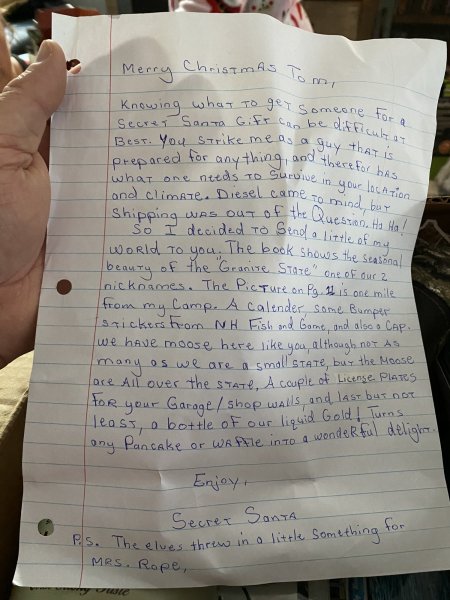 Merry Christmas Tom,
Knowing what to get someone for a
Secret Santa Gift can be difficult at
Best. You strike me as a guy that is
prepared for anything, and therefor has
what one needs to survive in your location
and climate. Diesel came to mind, but
shipping was out of the Question, Ha Ha!
So I decided to send a little of my
world to you. The book shows the seasonal
beauty of the "Granite State" one of our 2
nicknames. The Picture on Pg. 11 is one mile
from my Camp. A Calender, some Bumper
stickers from NH Fish and Game, and also a Cap.
We have moose here like you, although not as
many as we are a small state, but the Moose
are all over the state. A couple of License Plates
for your Garage/shop walls, and last but not
least, a bottle of our liquid Gold! Turns
any Pancake or waffle into a wonderful delight.
Enjoy,
Secret Santa
P.S. The elves threw in a little something for
Mrs. Rope,